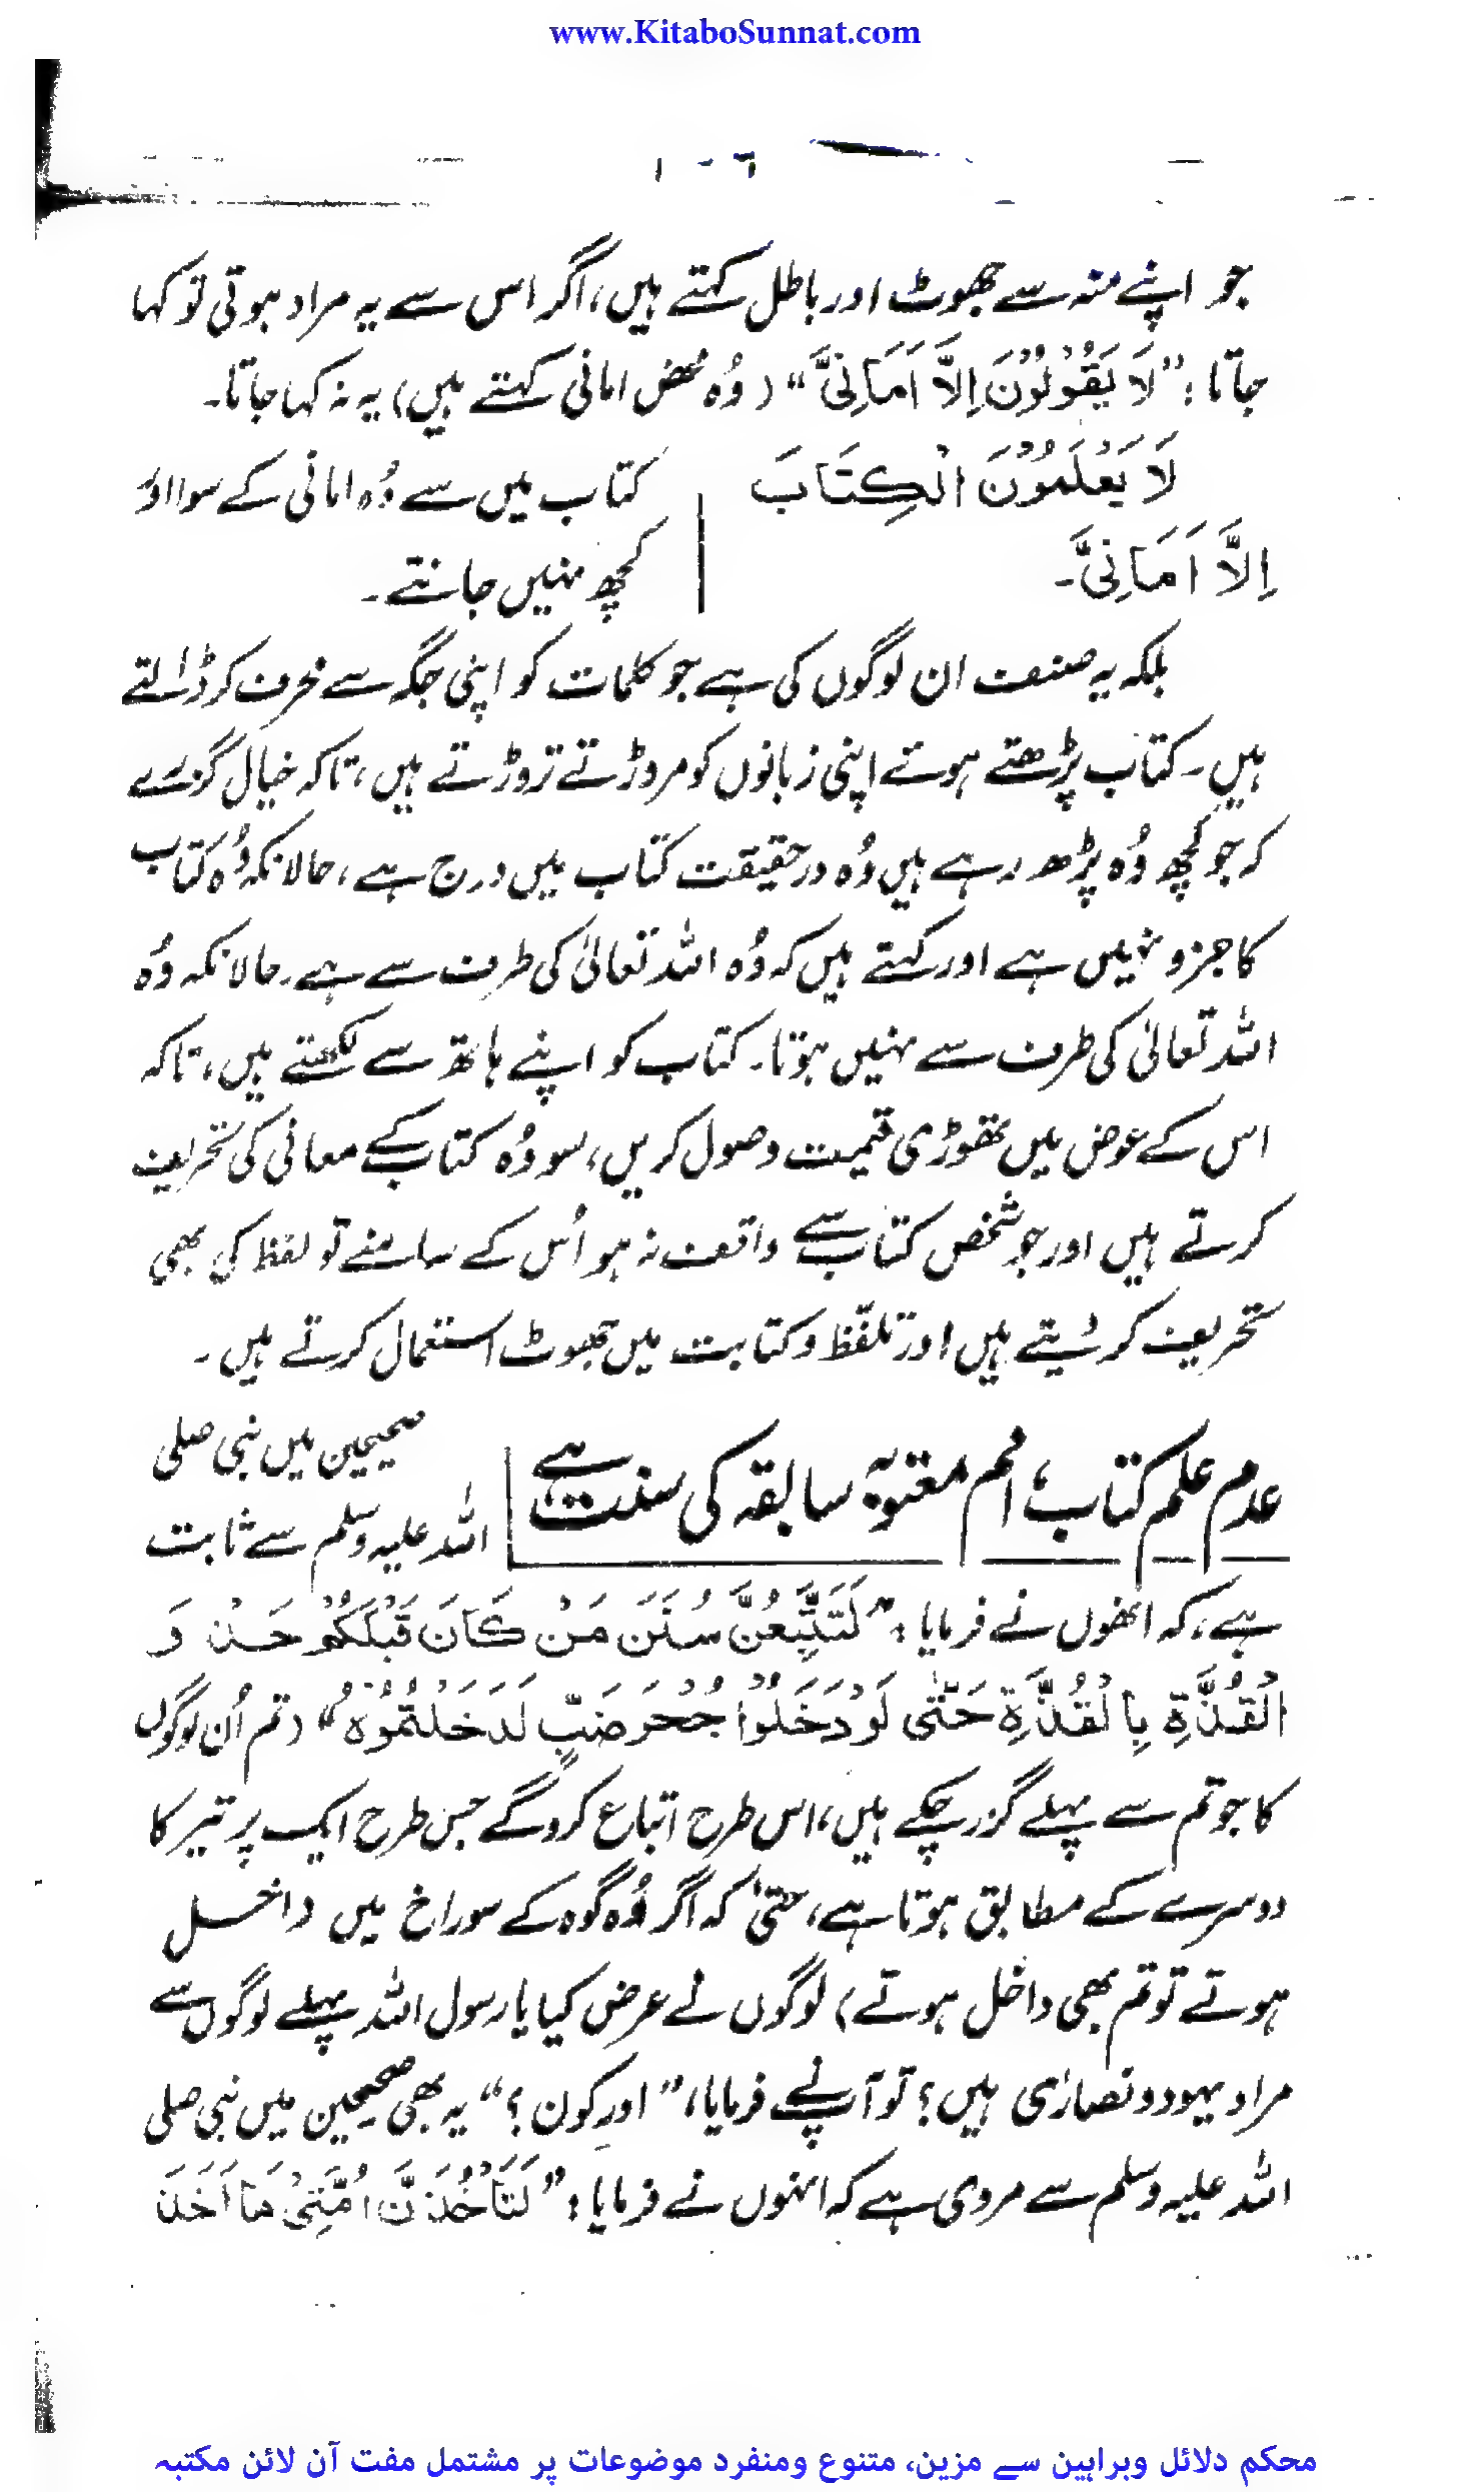 www.KitaboSunnat.com
۱۰۶
جو اپنے منہ سے جھوٹ اور باطل کہتے ہیں، اگر اس سے یہ مراد ہوتی تو کہا
جاتا: ”لَا یَقُوْلُوْنَ اِلَّا اَمَانِیَّ“ (وُہ محض امانی کہتے ہیں) یہ نہ کہا جاتا۔
لَا یَعْلَمُوْنَ الْکِتَابَ
اِلَّا اَمَانِیَّ۔
کتاب میں سے وُہ امانی کے سوا اور
کچھ نہیں جانتے۔
بلکہ یہ صنعت ان لوگوں کی ہے جو کلمات کو اپنی جگہ سے محرف کر ڈالتے
ہیں۔ کتاب پڑھتے ہوتے اپنی زبانوں کو مروڑتے تروڑتے ہیں، تاکہ خیال گزرے
کہ جو کچھ وُہ پڑھ رہے ہیں وُہ درحقیقت کتاب میں درج ہے، حالانکہ وُہ کتاب
کا جزو نہیں ہے اور کہتے ہیں کہ وُہ اللہ تعالیٰ کی طرف سے ہے۔ حالانکہ وُہ
اللہ تعالیٰ کی طرف سے نہیں ہوتا۔ کتاب کو اپنے ہاتھ سے لکھتے ہیں، تاکہ
اس کے عوض میں تھوڑی قیمت وصول کریں، سو وُہ کتاب کے معانی کی تحریف
کرتے ہیں اور جو شخص کتاب سے واقف نہ ہو اُس کے سامنے تو لفظ کی بھی
تحریف کر دیتے ہیں اور تلفّظ و کتابت میں جھوٹ استعمال کرتے ہیں۔
عدم علم کتاب، امم مغتوبہ سابقہ کی سنت ہے
صحیحین میں نبی صلی
اللہ علیہ وسلم سے ثابت
ہے، کہ انھوں نے فرمایا: ”لَتَتَّبِعُنَّ سُنَنَ مَنْ کَانَ قَبْلَکُمْ حَذْ وَ
الْقُذَّةِ بِالْقُذَّةِ حَتّٰی لَوْ دَخَلُوْا جُحْرَ ضَبٍّ لَدَخَلْتُمُوْهُ“ (تم اُن لوگوں
کا جو تم سے پہلے گزر چکے ہیں، اس طرح اتباع کرو گے جس طرح ایک پر تیر کا
دوسرے کے مطابق ہوتا ہے، حتیٰ کہ اگر وُہ گوہ کے سوراخ میں داخل
ہوتے تو تم بھی داخل ہوتے) لوگوں نے عرض کیا یا رسول اللہ پہلے لوگوں سے
مراد یہود و نصارٰی ہیں؟ تو آپ نے فرمایا، ”اور کون؟“ یہ بھی صحیحین میں نبی صلی
اللہ علیہ وسلم سے مروی ہے کہ انہوں نے فرمایا: ”لَتَاْخُذَنَّ اُمَّتِیْ مَا اَخَذَ
محکم دلائل وبراہین سے مزین، متنوع ومنفرد موضوعات پر مشتمل مفت آن لائن مکتبہ